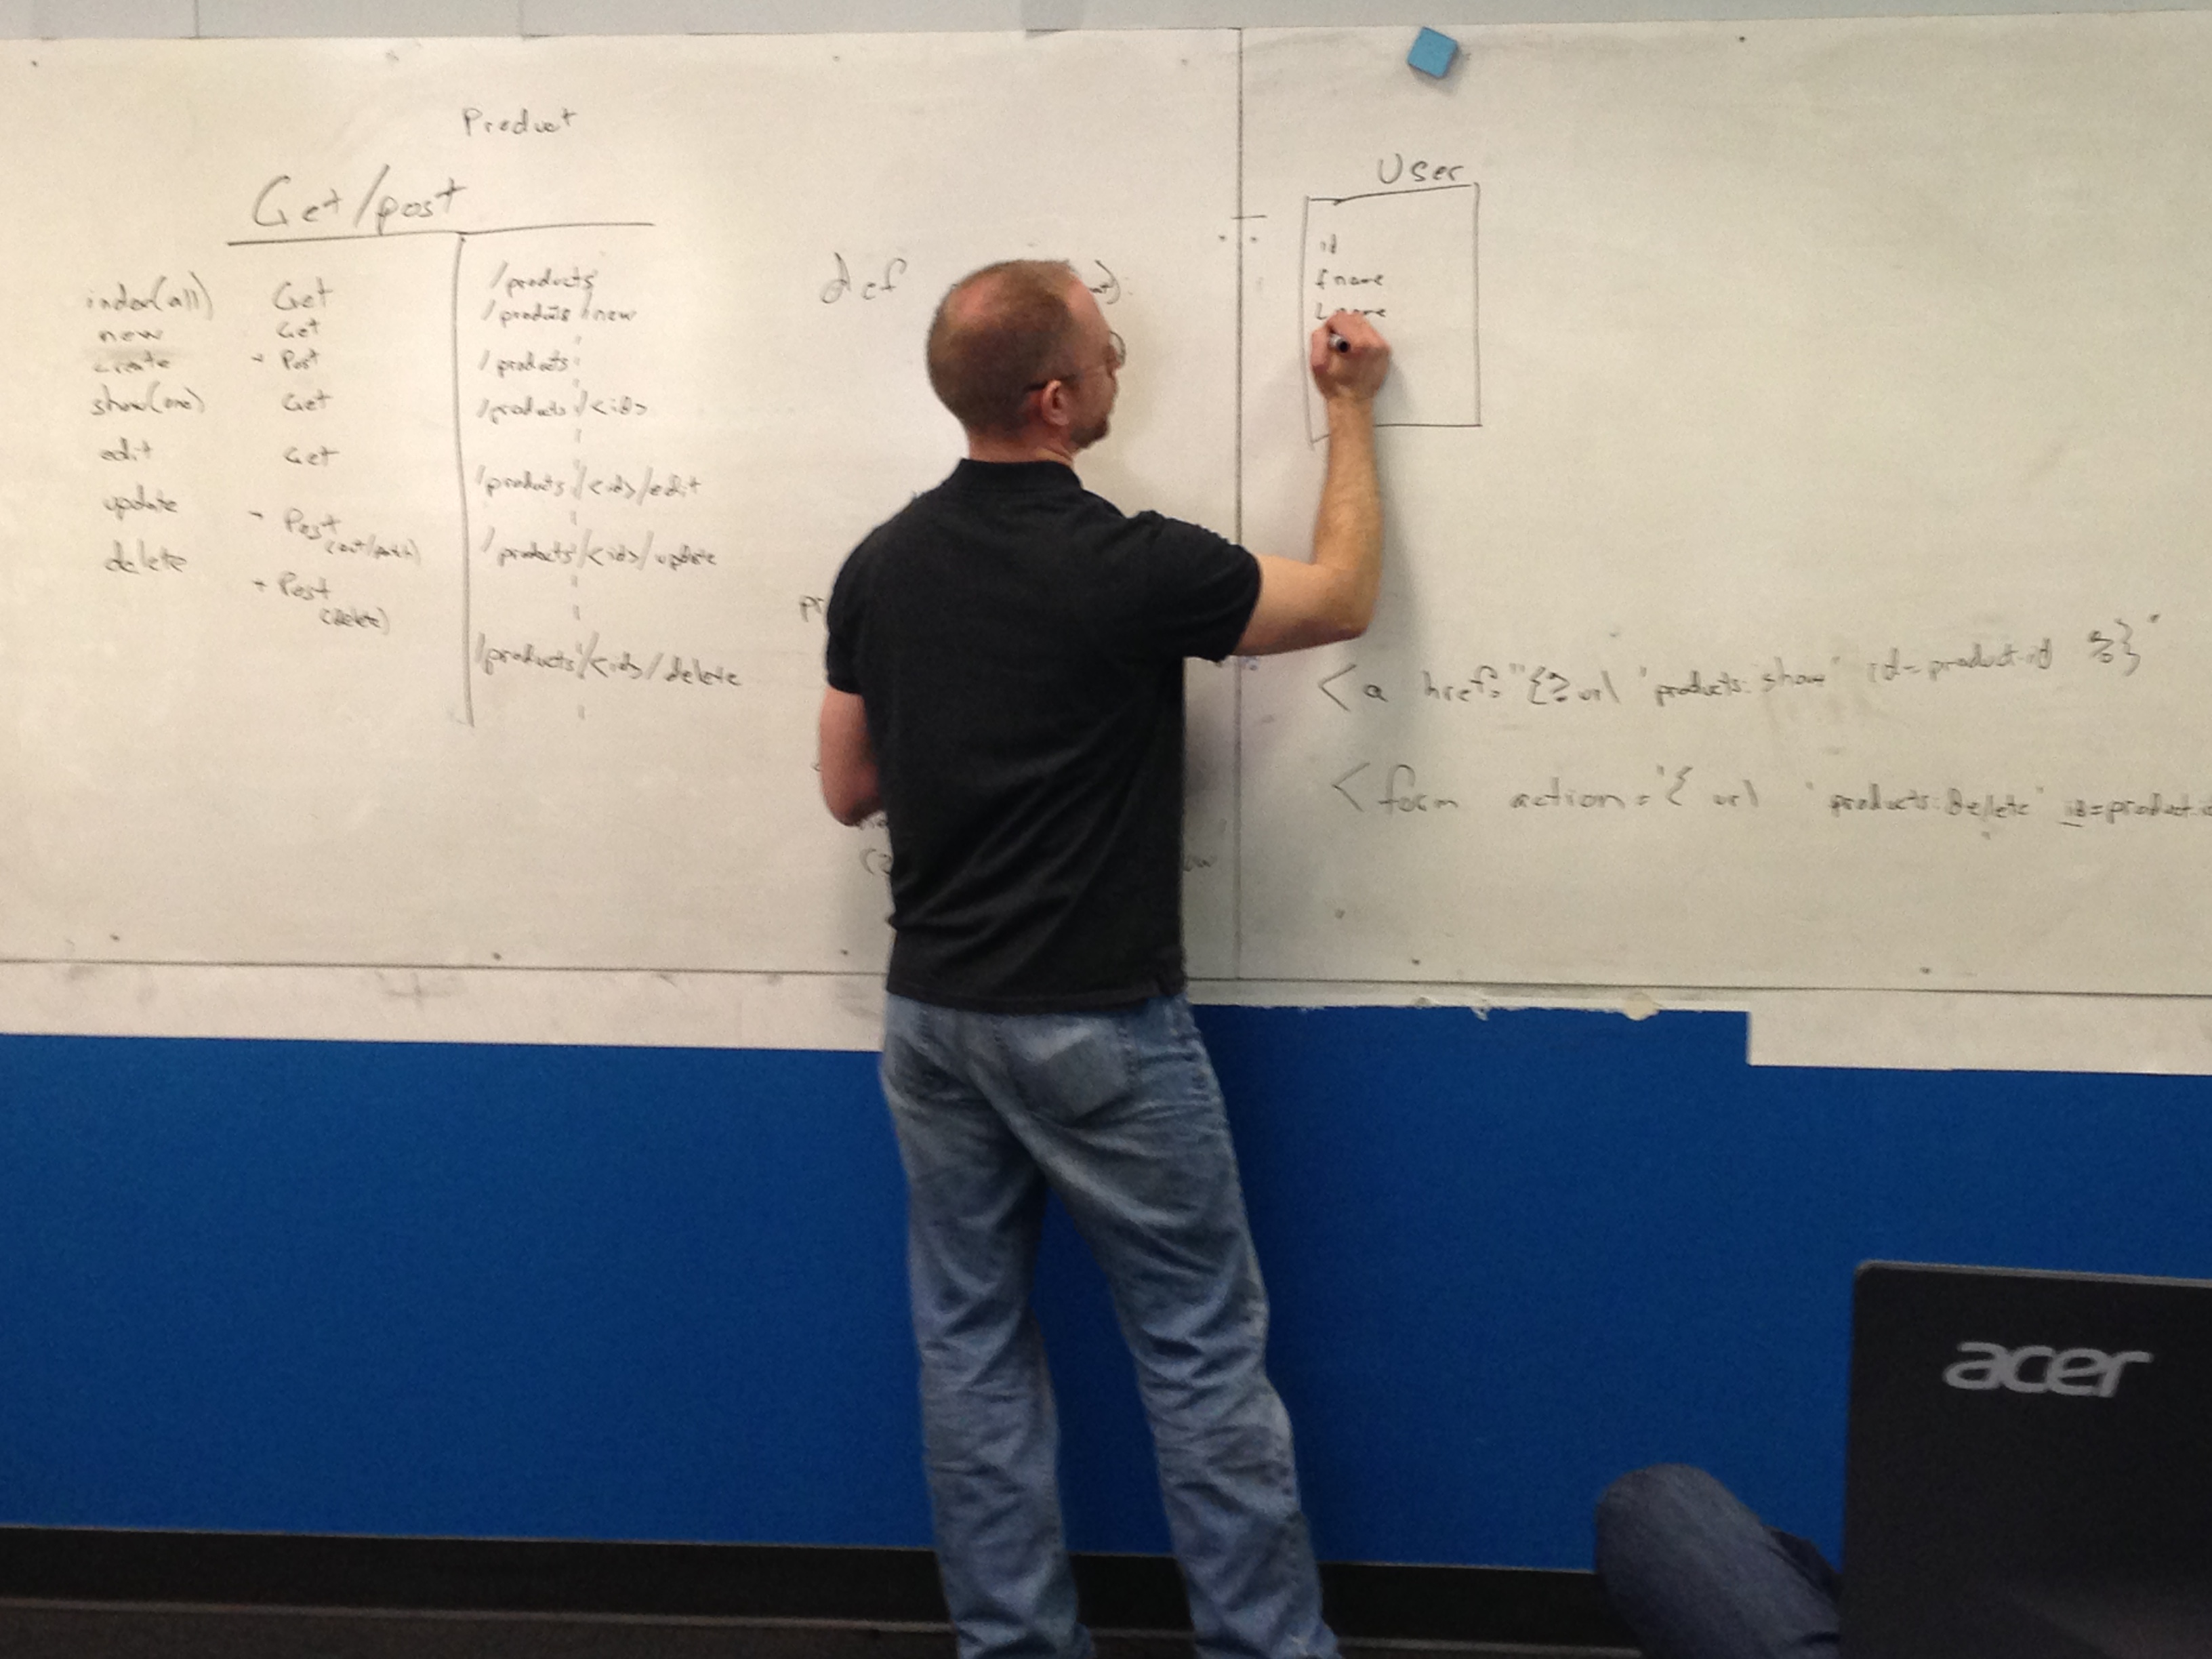 Product
Get/post
index(all) Get /products
new Get /products/new
create + Post /products
show(one) Get /products/<id>
edit Get /products/<id>/edit
update + Post /products/<id>/update
(put/patch)
delete + Post /products/<id>/delete
(delete)
def
User
id
fname
Lname
<a href="{% url 'products:show' id=product.id %}"
<form action='{ url 'products:Delete' id=product.i
acer